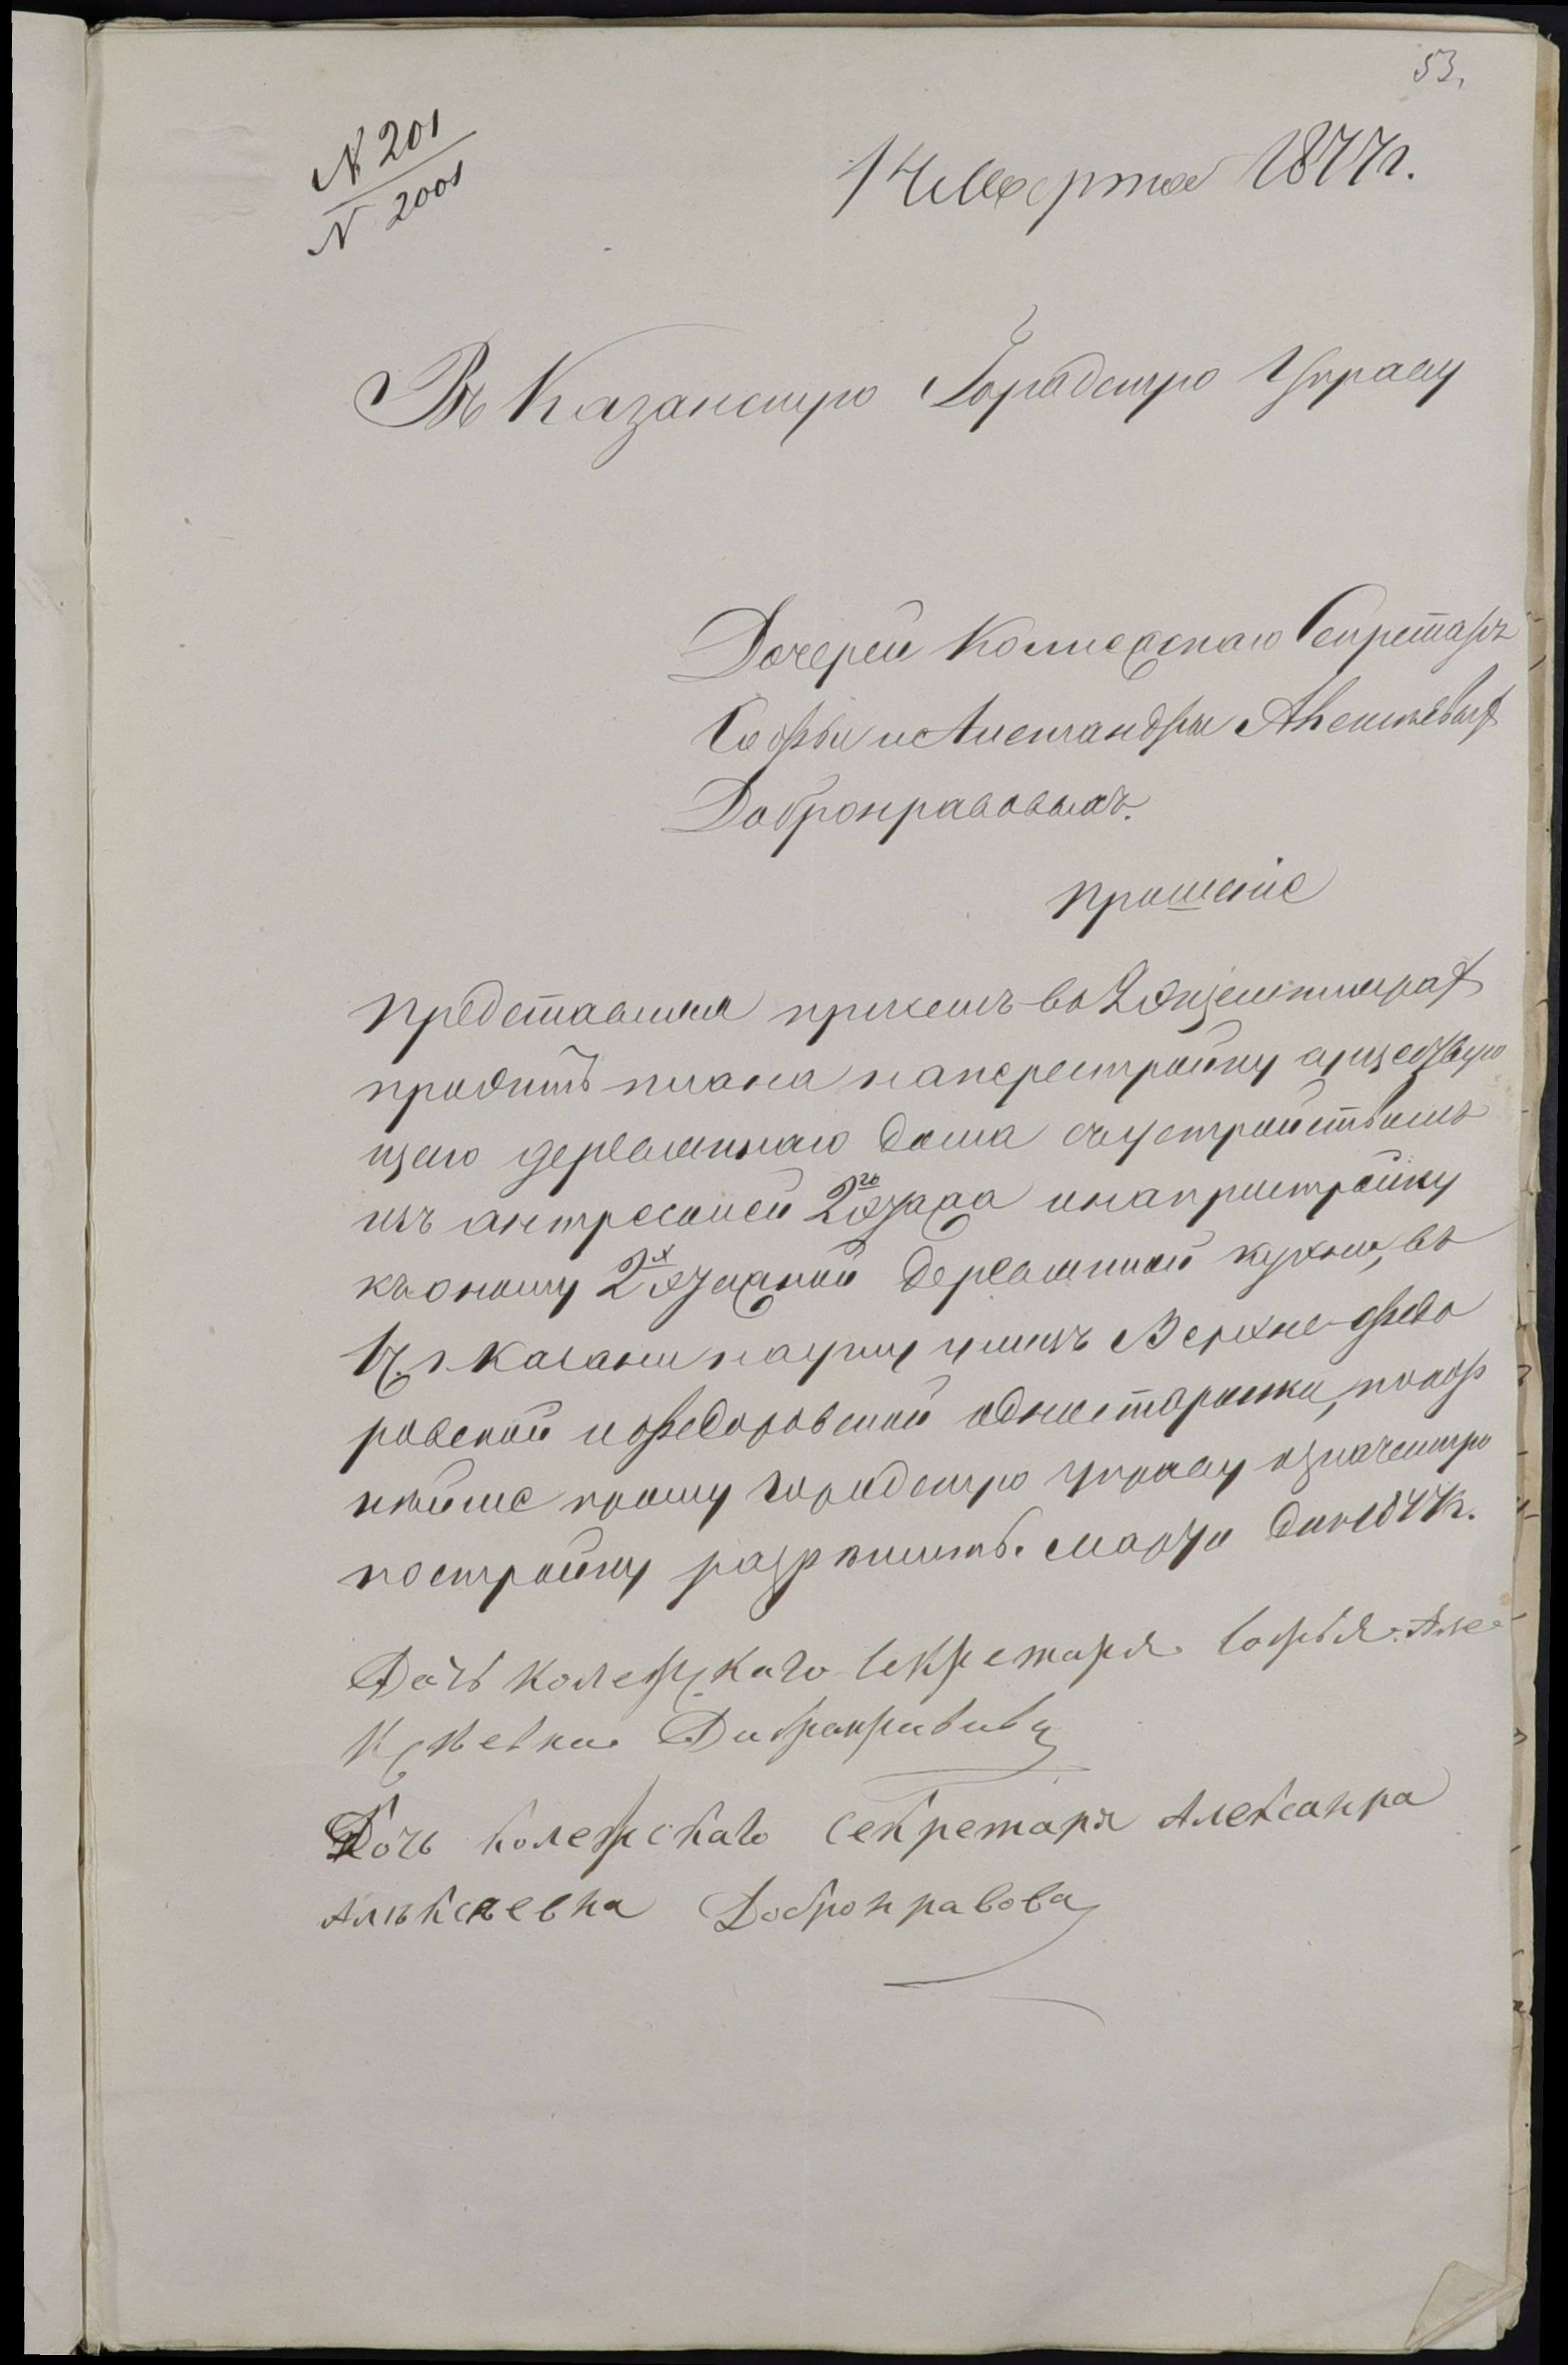 53.
№ 201
№ 2001
14 Марта 1877 г.
Въ Казанскую Городскую Управу
Дочерей Колежскаго Секретаря
Софьи и Александры Алексѣевыхъ
Добронравовыхъ.
прошеніе
Представляя при семъ въ 2 экземплярахъ
проэктъ плана на перестройку существую
щаго деревяннаго дома съ устройствомъ
изъ антресолей 2го этажа и на пристройку
къ оному 2х этажной деревянной кухни, въ
г. Казани на углу улицъ Верхне-Федо
ровской и Федоровской односторонки, покор
нѣйше прошу Городскую управу означенную
постройку разрѣшить. Марта дня 1877 г.
Дочь Колежскаго Секретаря Софья Але
ксѣевна Добронравова
Дочь Колежскаго Секретаря Александра
Алексѣевна Добронравова